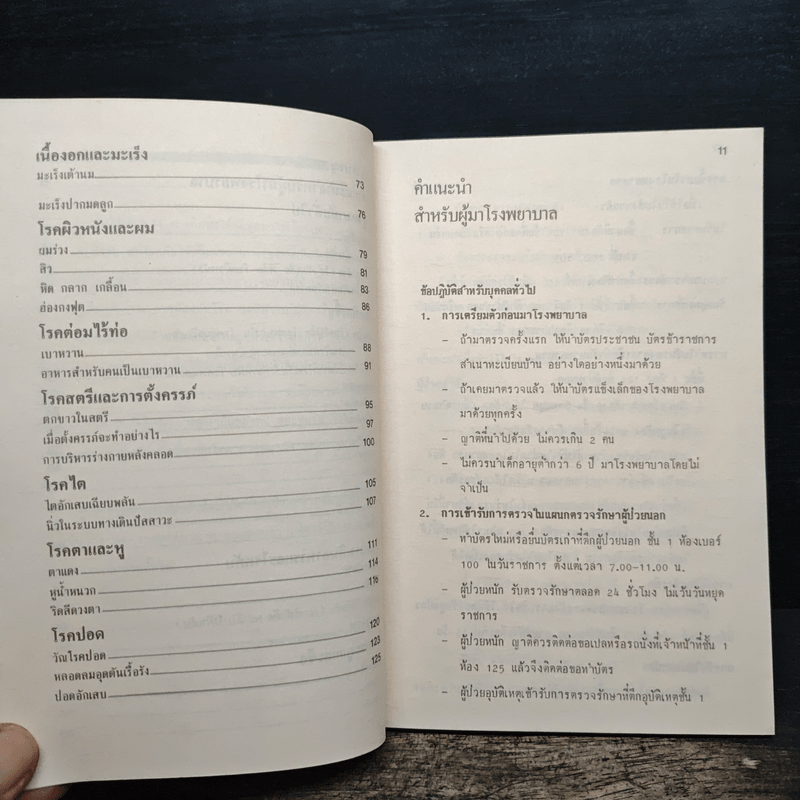 เนื้องอกและมะเร็ง
มะเร็งเต้านม 73
มะเร็งปากมดลูก 76
โรคผิวหนังและผม
ผมร่วง 79
สิว 81
หิด กลาก เกลื้อน 83
ฮ่องกงฟุต 86
โรคต่อมไร้ท่อ
เบาหวาน 88
อาหารสำหรับคนเป็นเบาหวาน 91
โรคสตรีและการตั้งครรภ์
ตกขาวในสตรี 95
เมื่อตั้งครรภ์จะทำอย่างไร 97
การบริหารร่างกายหลังคลอด 100
โรคไต
ไตอักเสบเฉียบพลัน 105
นิ่วในระบบทางเดินปัสสาวะ 107
โรคตาและหู
ตาแดง 111
หูน้ำหนวก 114
ริดสีดวงตา 116
โรคปอด
วัณโรคปอด 120
หลอดลมอุดตันเรื้อรัง 123
ปอดอักเสบ 125
11
คำแนะนำ
สำหรับผู้มาโรงพยาบาล
ข้อปฏิบัติสำหรับบุคคลทั่วไป
1. การเตรียมตัวก่อนมาโรงพยาบาล
– ถ้ามาตรวจครั้งแรก ให้นำบัตรประชาชน บัตรข้าราชการ
สำเนาทะเบียนบ้าน อย่างใดอย่างหนึ่งมาด้วย
– ถ้าเคยมาตรวจแล้ว ให้นำบัตรแข็งเล็กของโรงพยาบาล
มาด้วยทุกครั้ง
– ญาติที่นำไปด้วย ไม่ควรเกิน 2 คน
– ไม่ควรนำเด็กอายุต่ำกว่า 6 ปี มาโรงพยาบาลโดยไม่
จำเป็น
2. การเข้ารับการตรวจในแผนกตรวจรักษาผู้ป่วยนอก
– ทำบัตรใหม่หรือยื่นบัตรเก่าที่ตึกผู้ป่วยนอก ชั้น 1 ห้องเบอร์
100 ในวันราชการ ตั้งแต่เวลา 7.00-11.00 น.
– ผู้ป่วยหนัก รับตรวจรักษาตลอด 24 ชั่วโมง ไม่เว้นวันหยุด
ราชการ
– ผู้ป่วยหนัก ญาติควรติดต่อขอเปลหรือรถนั่งที่เจ้าหน้าที่ชั้น 1
ห้อง 125 แล้วจึงติดต่อขอทำบัตร
– ผู้ป่วยอุบัติเหตุเข้ารับการตรวจรักษาที่ตึกอุบัติเหตุชั้น 1